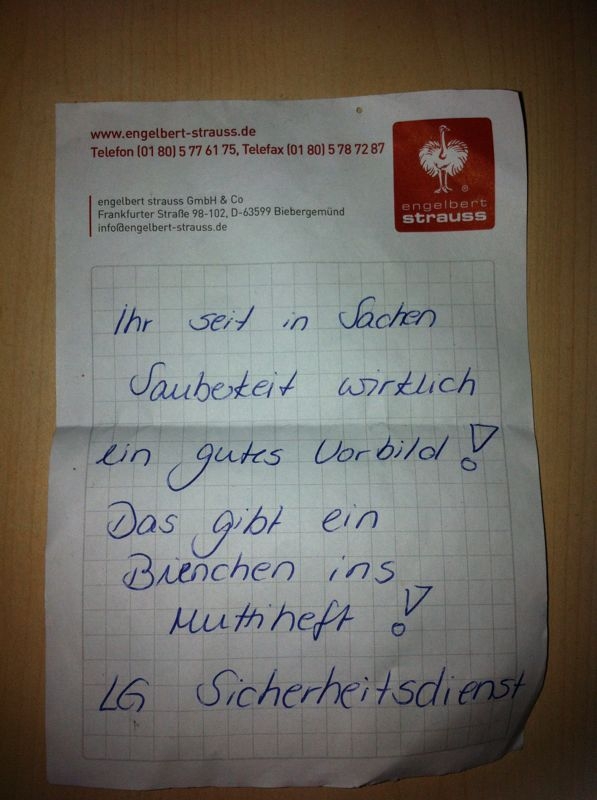 www.engelbert-strauss.de
Telefon (01 80) 5 77 61 75, Telefax (01 80) 5 78 72 87
engelbert strauss GmbH & Co
Frankfurter Straße 98-102, D-63599 Biebergemünd
info@engelbert-strauss.de
®
engelbert
strauss
Ihr seit in Sachen
Sauberkeit wirklich
ein gutes Vorbild!
Das gibt ein
Bienchen ins
Muttiheft!
LG Sicherheitsdienst